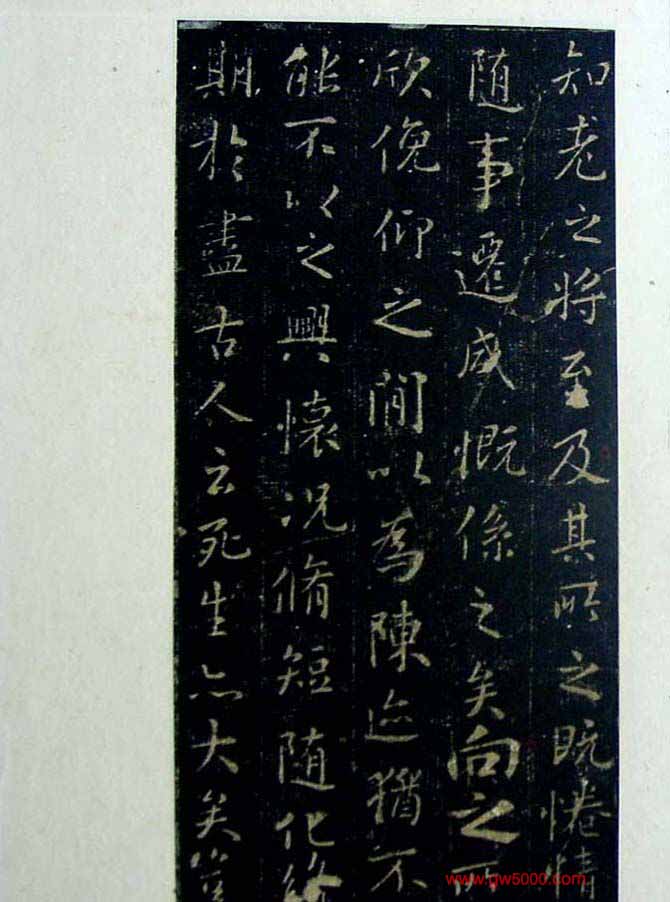 知老之将至及其所之既惓情
随事遷感慨係之矣向之所
欣俛仰之間以為陳迹猶不
能不以之興懷况脩短随化終
期於盡古人云死生亦大矣豈
www.gw5000.com